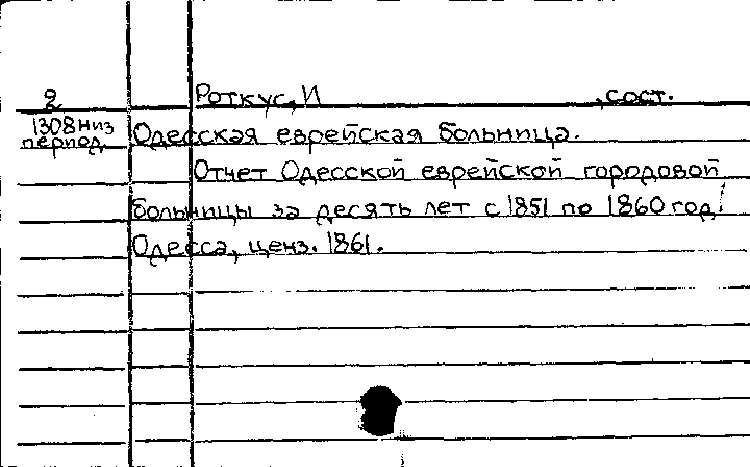 2 Роткус, И , сост.
1308 низ
период. Одесская еврейская больница.
Отчет Одесской еврейской городовой
больницы за десять лет с 1851 по 1860 год.
Одесса, ценз. 1861.